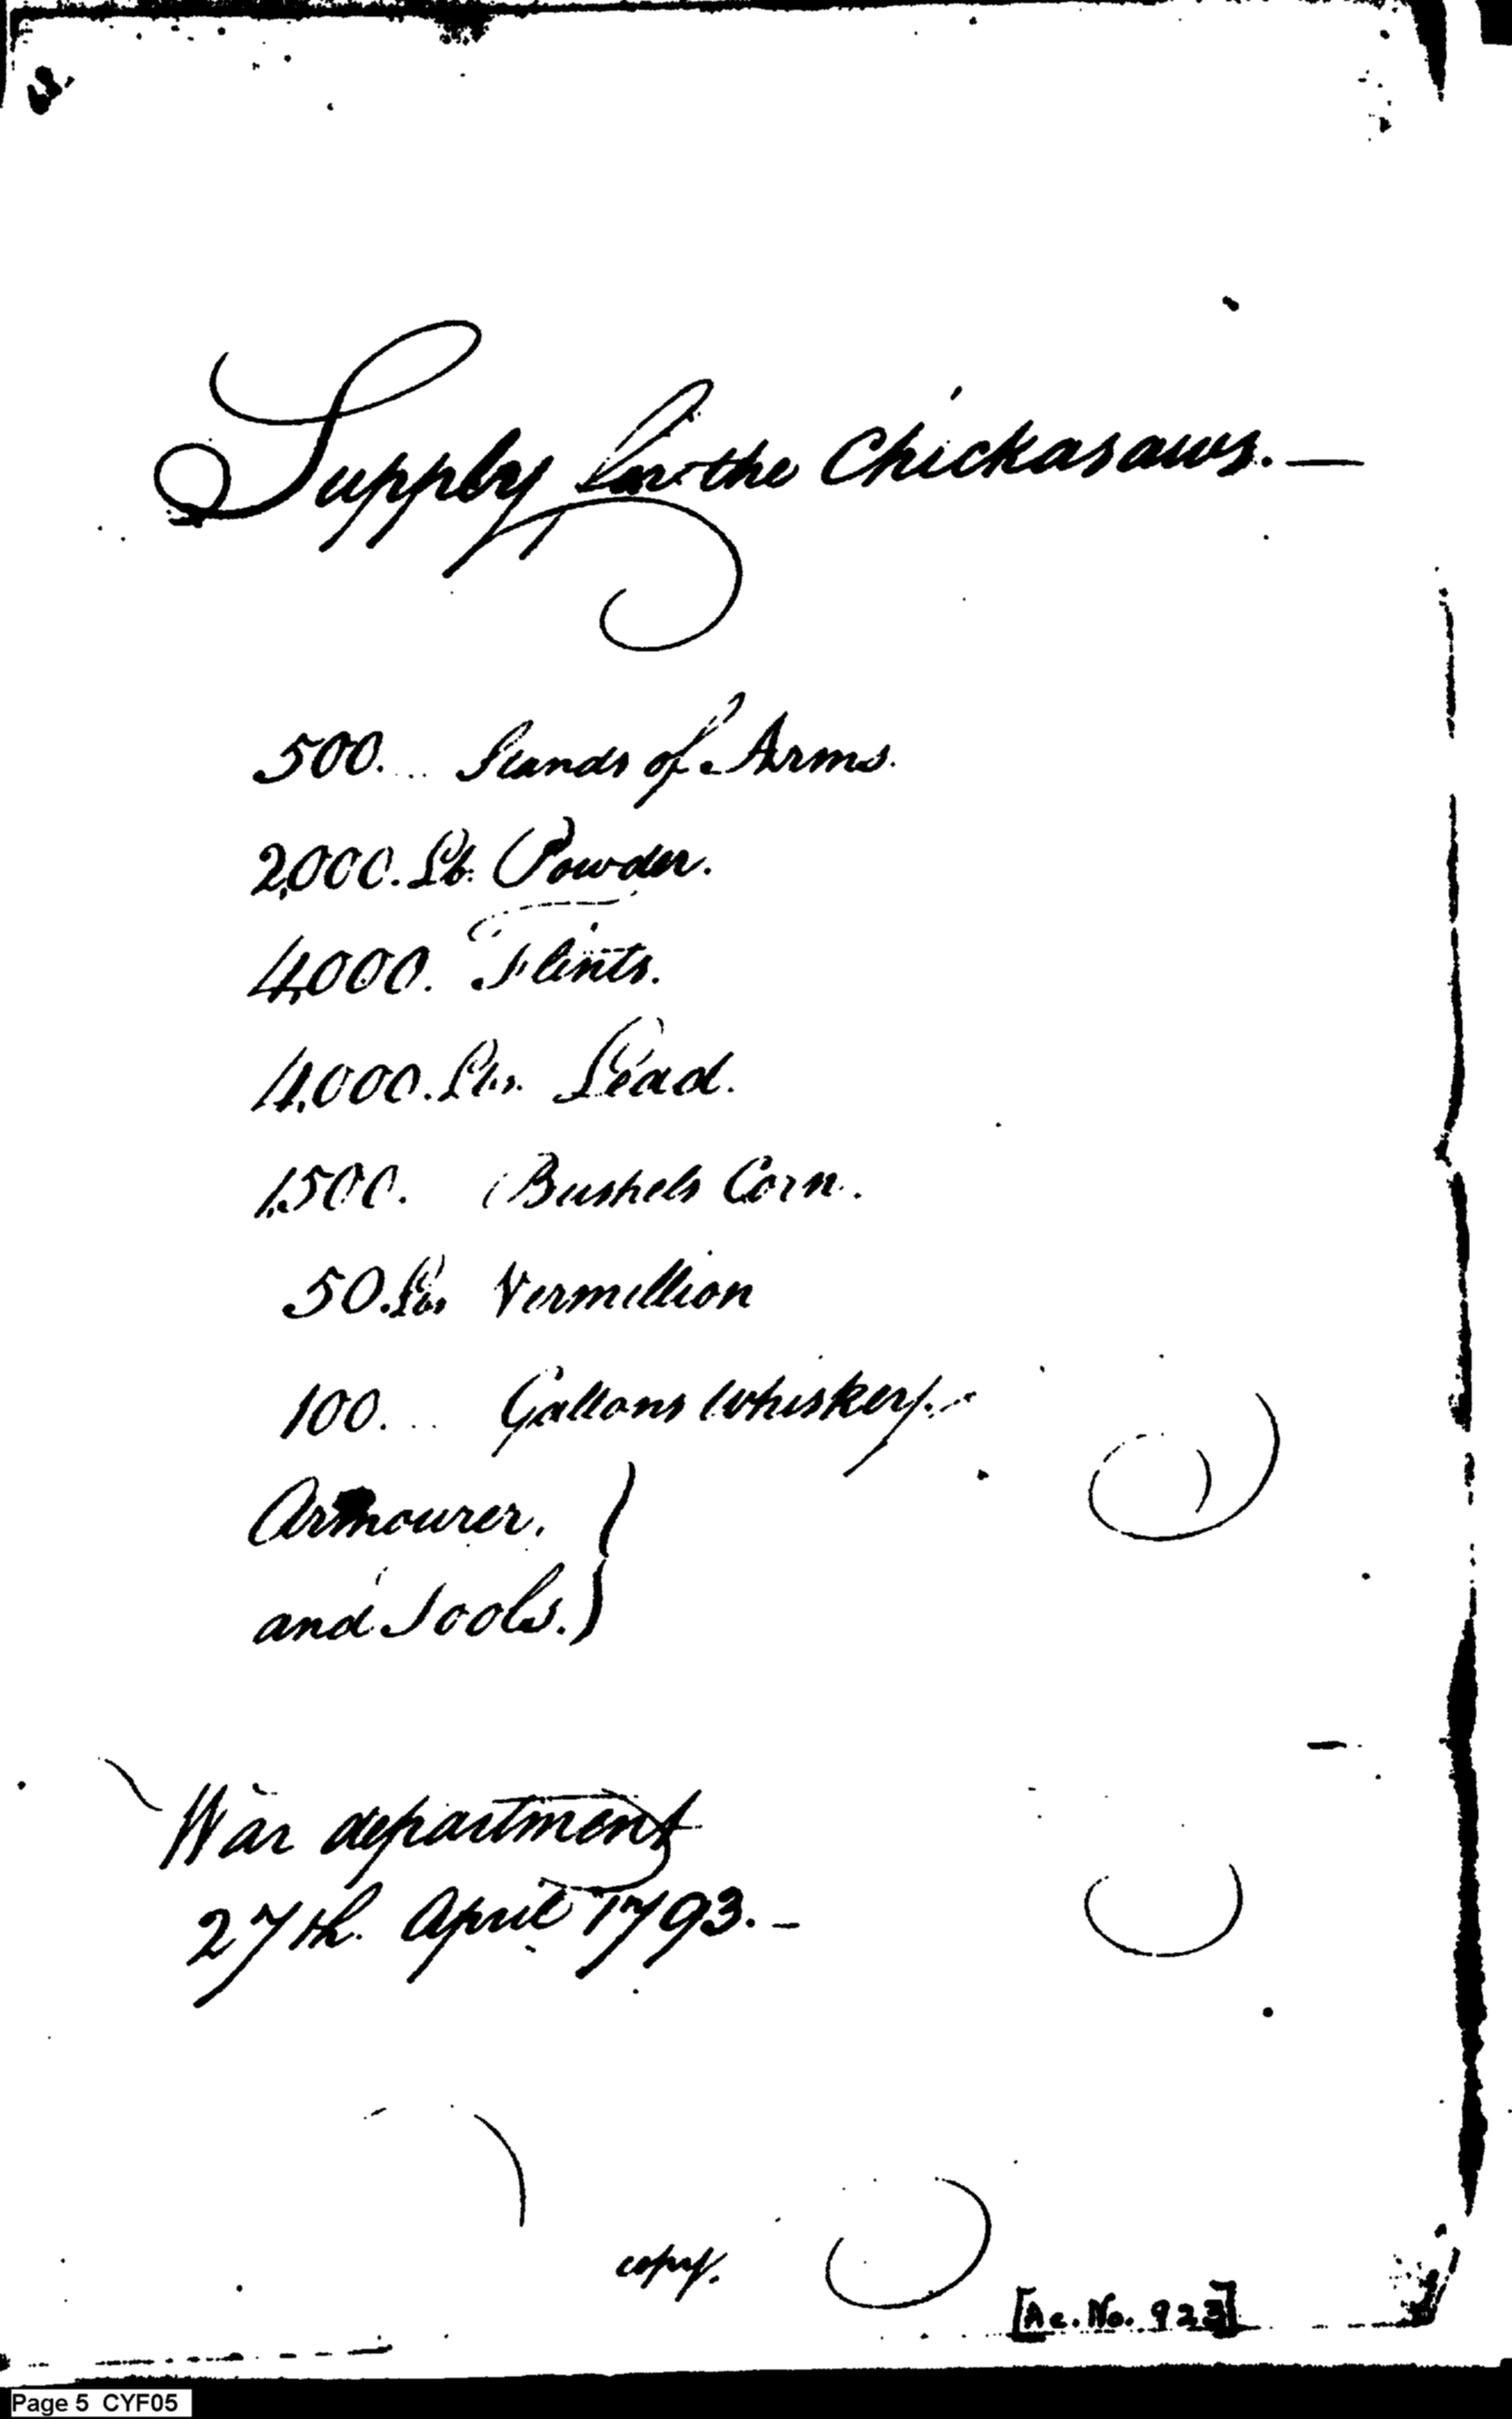 Supply for the Chickasaws.—
500... Stands of Arms.
2,000. Lb. Powder.
4,000. Flints.
4,000. Lbs. Lead.
1,500. Bushels Corn.
50. Lbs Vermillion
100... Gallons Whiskey.
Armourer.
and Tools.
War department
27th. April 1793.-
copy.
[Ac. No. 923]
Page 5 CYF05